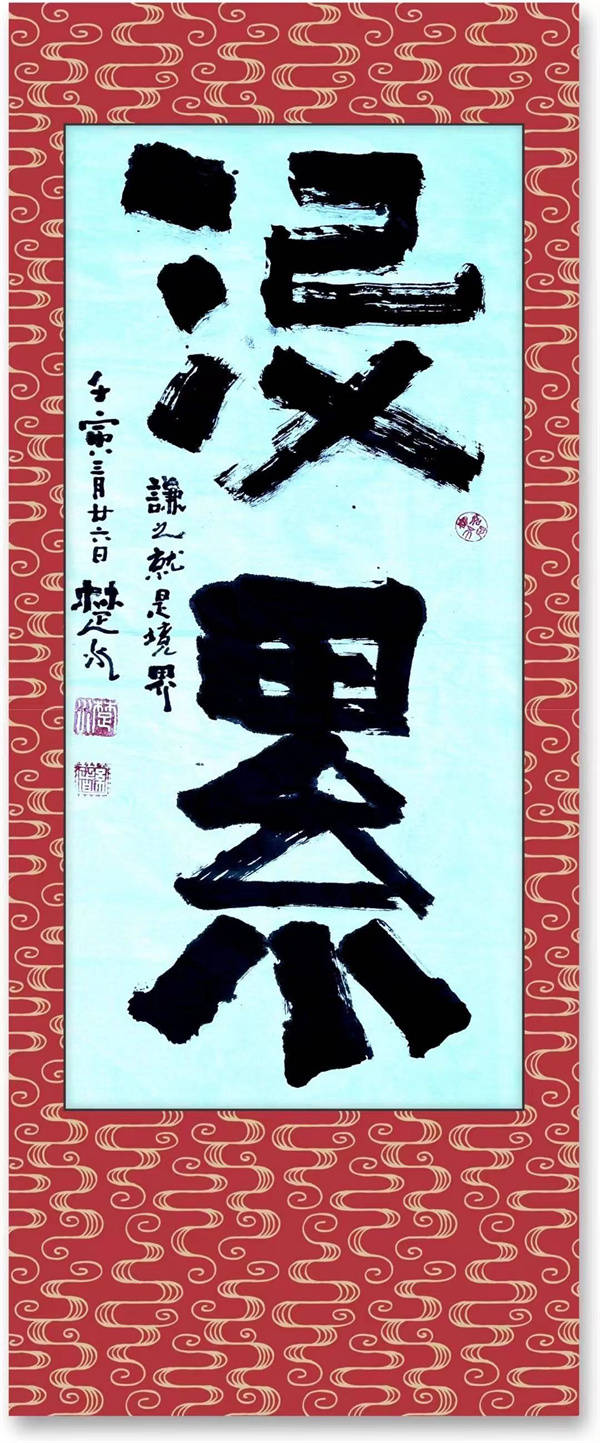 没累
謙之就是境界
壬寅三月廿六日 楚